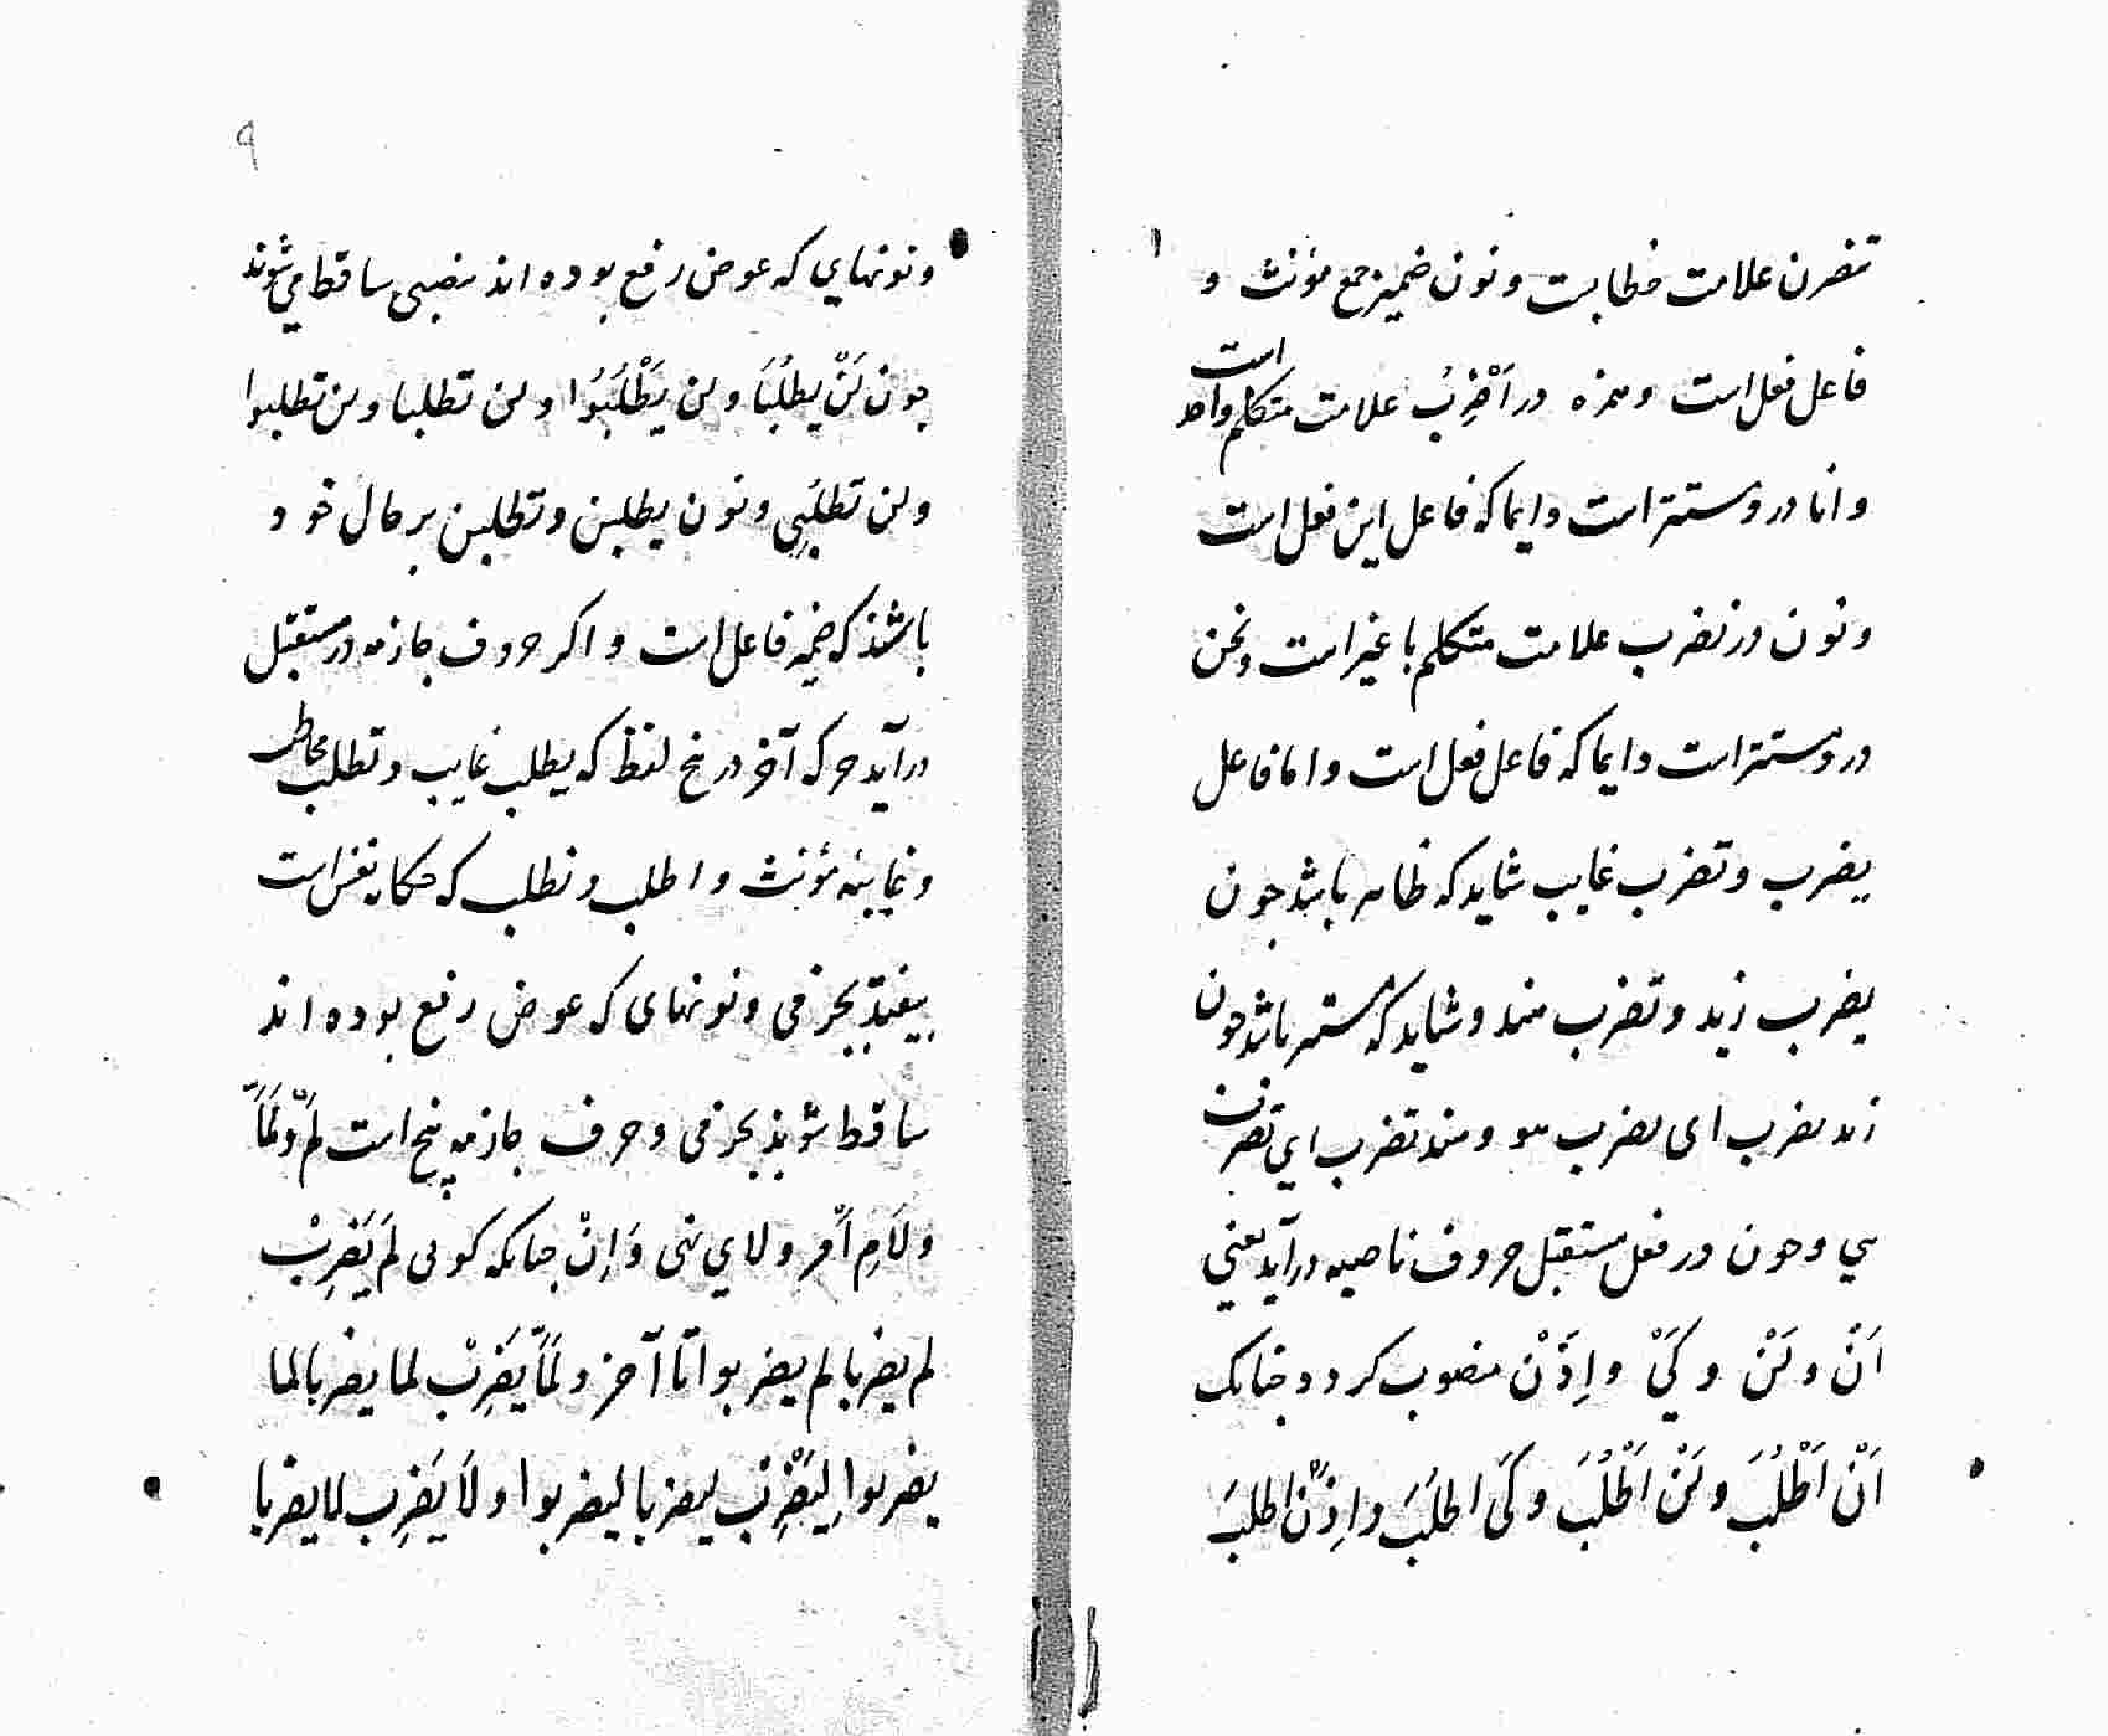 تضربن علامت خطابست و نون ضمیر جمع مؤنث و
فاعل فعل است و همزه در اَضْرِبُ علامت متکلم واحد است
و انا درو مستتر است دایما که فاعل این فعل است
و نون در نضرب علامت متکلم با غیر است و نحن
درو مستتر است دایما که فاعل فعل است و اما فاعل
یضرب و تضرب غایب شاید که ظاهر باشد جون
یضرب زید و تضرب هند و شاید که مستتر باشد جون
زید یضرب ای یضرب هو و هند تضرب ای تضرب
هی و جون در فعل مستقبل حروف ناصبه درآید یعنی
اَنْ و لَنْ و کَیْ و اِذَنْ منصوب کردد جنانک
اَنْ اَطْلُبَ و لَنْ اَطْلُبَ و کَی اطلُبَ و اِذَنْ اطلبَ
۹
و نونهایی که عوض رفع بوده اند بنصبی ساقط می شوند
جون لَنْ یطلُبَا و لن یَطْلُبُوا و لن تطلبا و لن تطلبوا
و لن تطلُبِی و نون یطلبن و تطلبن بر حال خود
باشد که ضمیر فاعل است و اکر حروف جازمه در مستقبل
درآید حرکه آخر در پنج لفظ که یطلب غایب و تطلب مخاطب
و غایبه مؤنث و اطلب و نطلب که حکایه نفس است
بیفتد بجزمی و نونهای که عوض رفع بوده اند
ساقط شوند بجزمی و حرف جازمه پنج است لم و لَمَّا
و لَامِ اَمْر و لای نهی وَ اِنْ جنانکه کویی لَمْ یَضْرِبْ
لم یضربا لم یضربوا تا آخر و لَمَّا یَضْرِبْ لما یضربا لما
یضربوا لِیَضْرِبْ لیضربا لیضربوا و لَا یَضْرِب لا یضربا